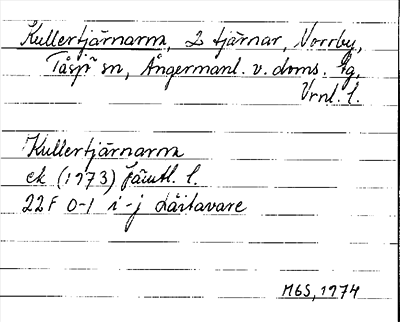 Kullertjärnarna, 2 tjärnar, Norrby,
Tåsjö sn, Ångermanl. v. doms. lg,
Vrnl. l.
Kullertjärnarna
ek (1973) Jämtl. l.
22F 0-1 i-j Låitavare
MGS, 1974